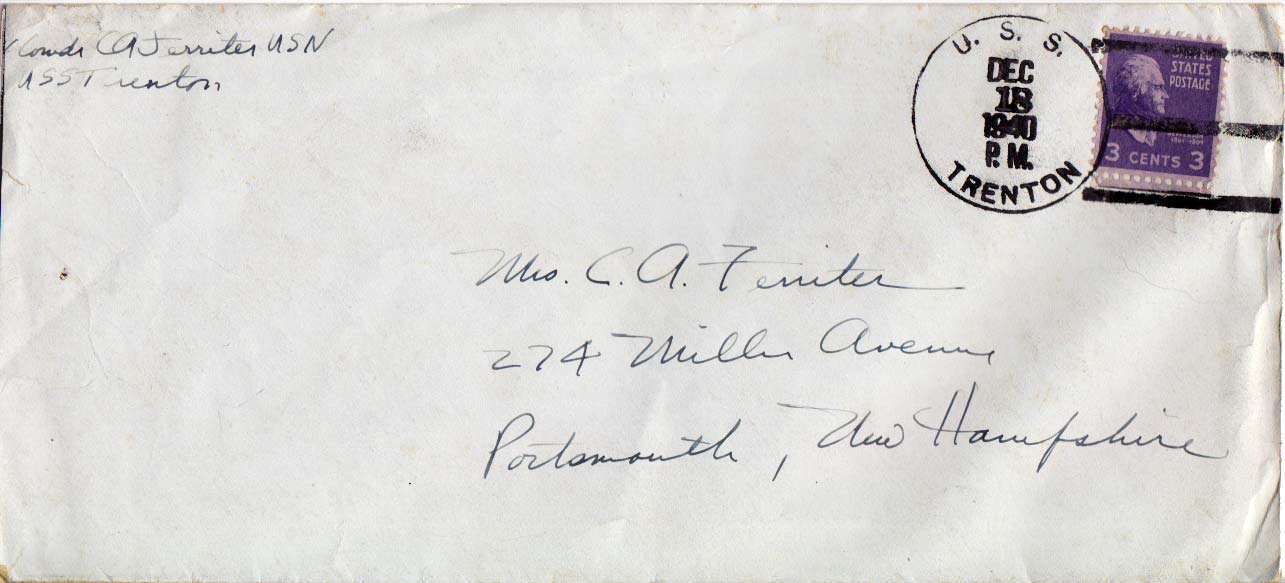 Comdr C A Ferriter USN
USS Trenton
U. S. S.
DEC
18
1940
P.M.
TRENTON
UNITED
STATES
POSTAGE
3 CENTS 3
Mrs. C. A. Ferriter
274 Miller Avenue
Portsmouth, New Hampshire